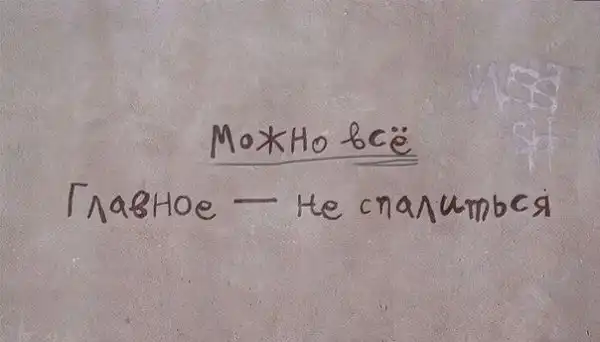 Можно всё
Главное — не спалиться